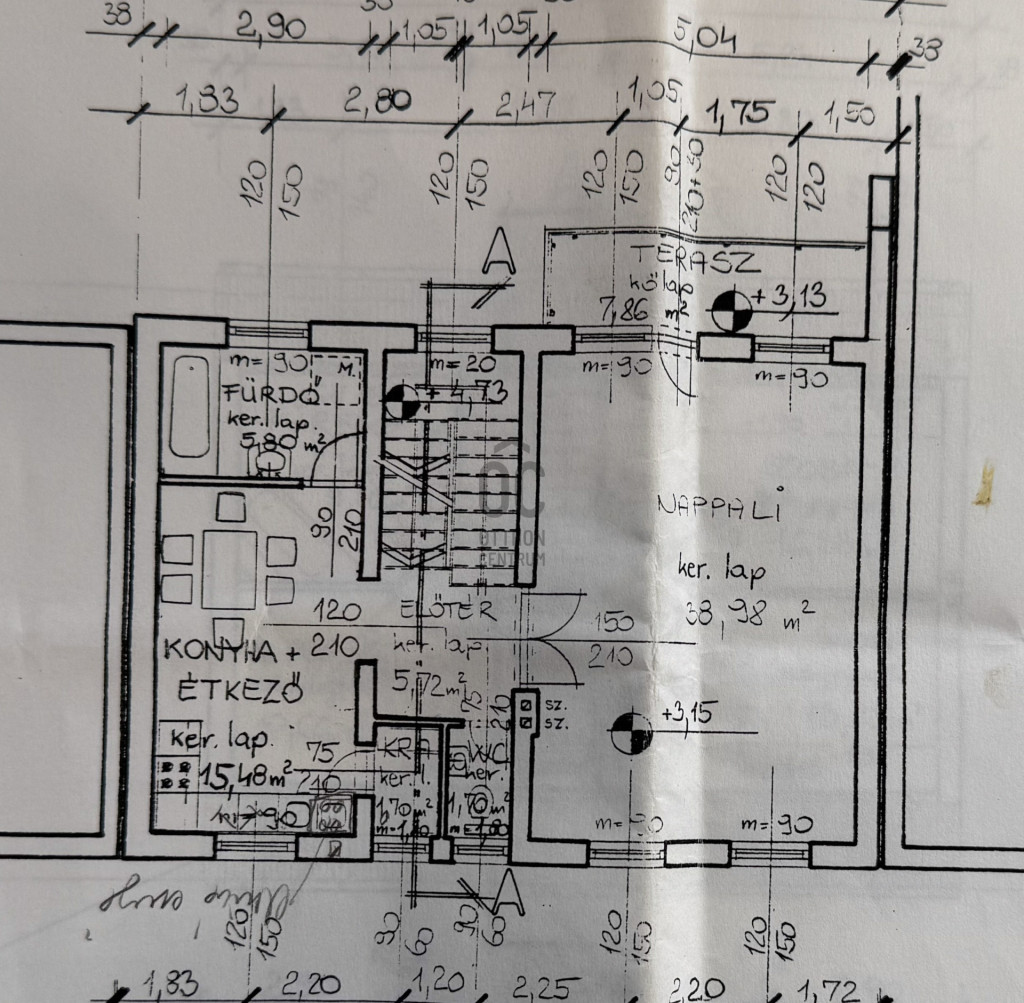 38
2,90
1,05
1,05
5,04
38
1,83
2,80
2,47
1,05
1,75
1,50
120
150
120
150
120
150
90
210+30
120
120
A
TERASZ
kő lap
7,86 m²
+3,13
m=90
M.
FÜRDŐ
ker. lap.
5,80 m²
m=20
+4,73
m=90
m=90
90
210
ÓC
OTTHON
CENTRUM
NAPPALI
ker. lap
38,98 m²
120
210
ELŐTÉR
ker. lap
5,72 m²
150
210
KONYHA +
ÉTKEZŐ
ker. lap.
15,48 m²
75
210
75
210
sz.
sz.
+3,15
KRA
ker. l.
1,70 m²
WC
ker.
1,70 m²
m=1,80
m=90
m=90
A
120
150
90
60
90
60
120
150
120
150
1,83
2,20
1,20
2,25
2,20
1,72